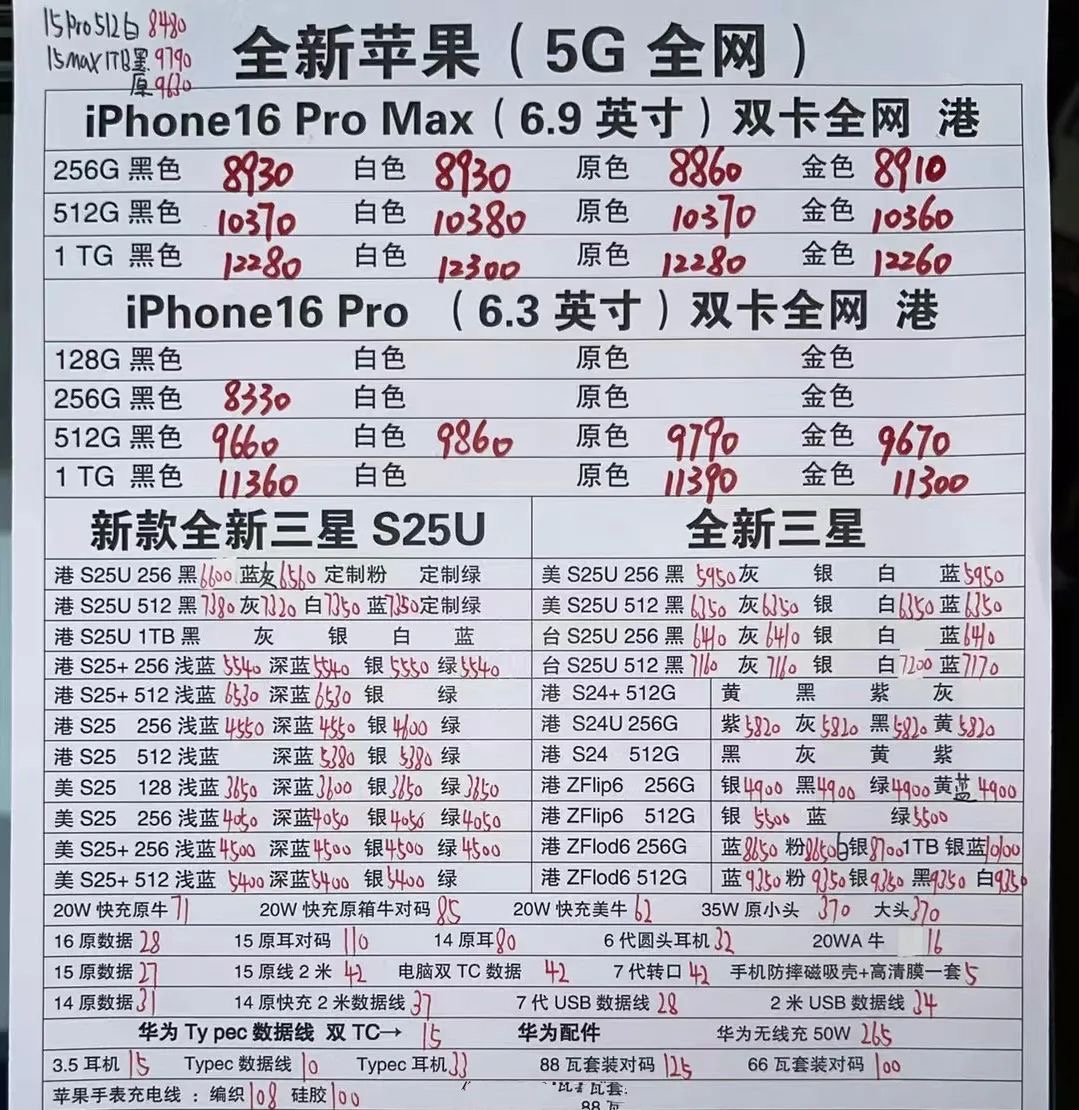 15Pro 512白 8480
15max 1TB黑 9790
原 9630
全新苹果（5G 全网）
iPhone16 Pro Max（6.9 英寸）双卡全网 港
256G 黑色 8930 白色 8930 原色 8860 金色 8910
512G 黑色 10370 白色 10380 原色 10370 金色 10360
1 TG 黑色 12280 白色 12300 原色 12280 金色 12260
iPhone16 Pro （6.3 英寸）双卡全网 港
128G 黑色 白色 原色 金色
256G 黑色 8330 白色 原色 金色
512G 黑色 9660 白色 9860 原色 9790 金色 9670
1 TG 黑色 11360 白色 原色 11390 金色 11300
新款全新三星 S25U
港 S25U 256 黑6600 蓝灰6560 定制粉 定制绿
港 S25U 512 黑7380 灰7320 白7350 蓝7350 定制绿
港 S25U 1TB 黑 灰 银 白 蓝
港 S25+ 256 浅蓝 5540 深蓝5540 银 5550 绿5540
港 S25+ 512 浅蓝 6530 深蓝6530 银 绿
港 S25 256 浅蓝 4550 深蓝4550 银4600 绿
港 S25 512 浅蓝 深蓝5380 银 5380 绿
美 S25 128 浅蓝3650 深蓝3600 银3650 绿3650
美 S25 256 浅蓝4050 深蓝4050 银4050 绿4050
美 S25+ 256 浅蓝4500 深蓝4500 银4500 绿4500
美 S25+ 512 浅蓝 5400 深蓝5400 银5400 绿
全新三星
美 S25U 256 黑 5950 灰 银 白 蓝5950
美 S25U 512 黑6350 灰6350 银 白6350 蓝6350
台 S25U 256 黑6410 灰6410 银 白 蓝6410
台 S25U 512 黑7160 灰7160 银 白7200 蓝7170
港 S24+ 512G 黄 黑 紫 灰
港 S24U 256G 紫5820 灰5820 黑5820 黄5820
港 S24 512G 黑 灰 黄 紫
港 ZFlip6 256G 银4900 黑4900 绿4900 黄蓝4900
港 ZFlip6 512G 银 5500 蓝 绿5500
港 ZFlod6 256G 蓝8650 粉8650 银8700 1TB 银蓝10100
港 ZFlod6 512G 蓝9350 粉 9350 银9350 黑9350 白9350
20W 快充原牛71 20W 快充原箱牛对码85 20W 快充美牛62 35W 原小头 370 大头370
16 原数据28 15 原耳对码 110 14 原耳80 6 代圆头耳机32 20WA 牛 16
15 原数据27 15 原线2 米 42 电脑双 TC 数据 42 7 代转口42 手机防摔磁吸壳+高清膜一套5
14 原数据31 14 原快充 2 米数据线37 7 代 USB 数据线28 2 米 USB 数据线34
华为 Ty pec 数据线 双 TC→ 15 华为配件 华为无线充 50W 265
3.5 耳机15 Typec 数据线10 Typec 耳机33 88 瓦套装对码 125 66 瓦套装对码 100
苹果手表充电线 ：编织108 硅胶100